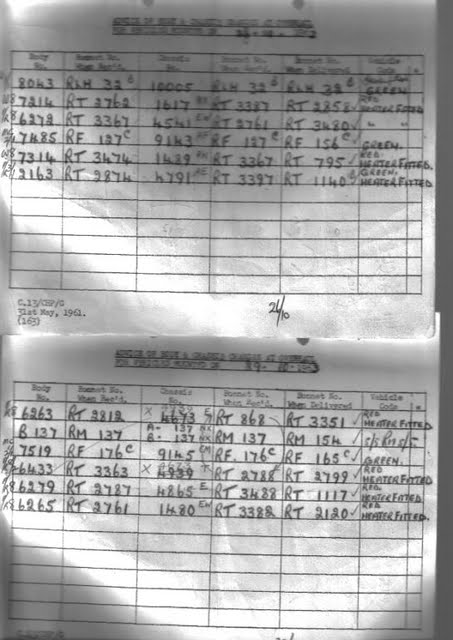 ADVICE OF BODY & CHASSIS CHANGES AT OVERHAUL
FOR VEHICLES
Body No. Bonnet No. When Rec'd. Chassis No. Bonnet No. When Rec'd. Bonnet No. When Delivered Vehicle Code
8043 RLH 32 10005 RLH 32 RLH 32 GREEN
7214 RT 2762 1617 RT 3387 RT 2858 RED HEATER FITTED
6272 RT 3367 4541 RT 2761 RT 3480 " "
7485 RF 127 C 9143 RF 127 C RF 156 C GREEN.
7314 RT 3474 1489 RT 3367 RT 795 RED HEATER FITTED.
2163 RT 2874 4791 RT 3397 RT 1140 GREEN. HEATER FITTED
C.13/CHP/G
31st May, 1961.
(163)
24/10
ADVICE OF BODY & CHASSIS CHANGES AT OVERHAUL
FOR VEHICLES
Body No. Bonnet No. When Rec'd. Chassis No. Bonnet No. When Rec'd. Bonnet No. When Delivered Vehicle Code
6263 RT 2812 X 4673 RT 868 RT 3351 RED HEATER FITTED
B 137 RM 137 A- 137 B- 137 RM 137 RM 154
7519 RF 176 C 9145 RF. 176 C RF 165 C GREEN.
6433 RT 3363 X RT 2788 RT 2799 RED HEATER FITTED
6279 RT 2787 4865 E RT 3488 RT 1117 RED HEATER FITTED
6265 RT 2761 1480 RT 3382 RT 2120 RED HEATER FITTED.